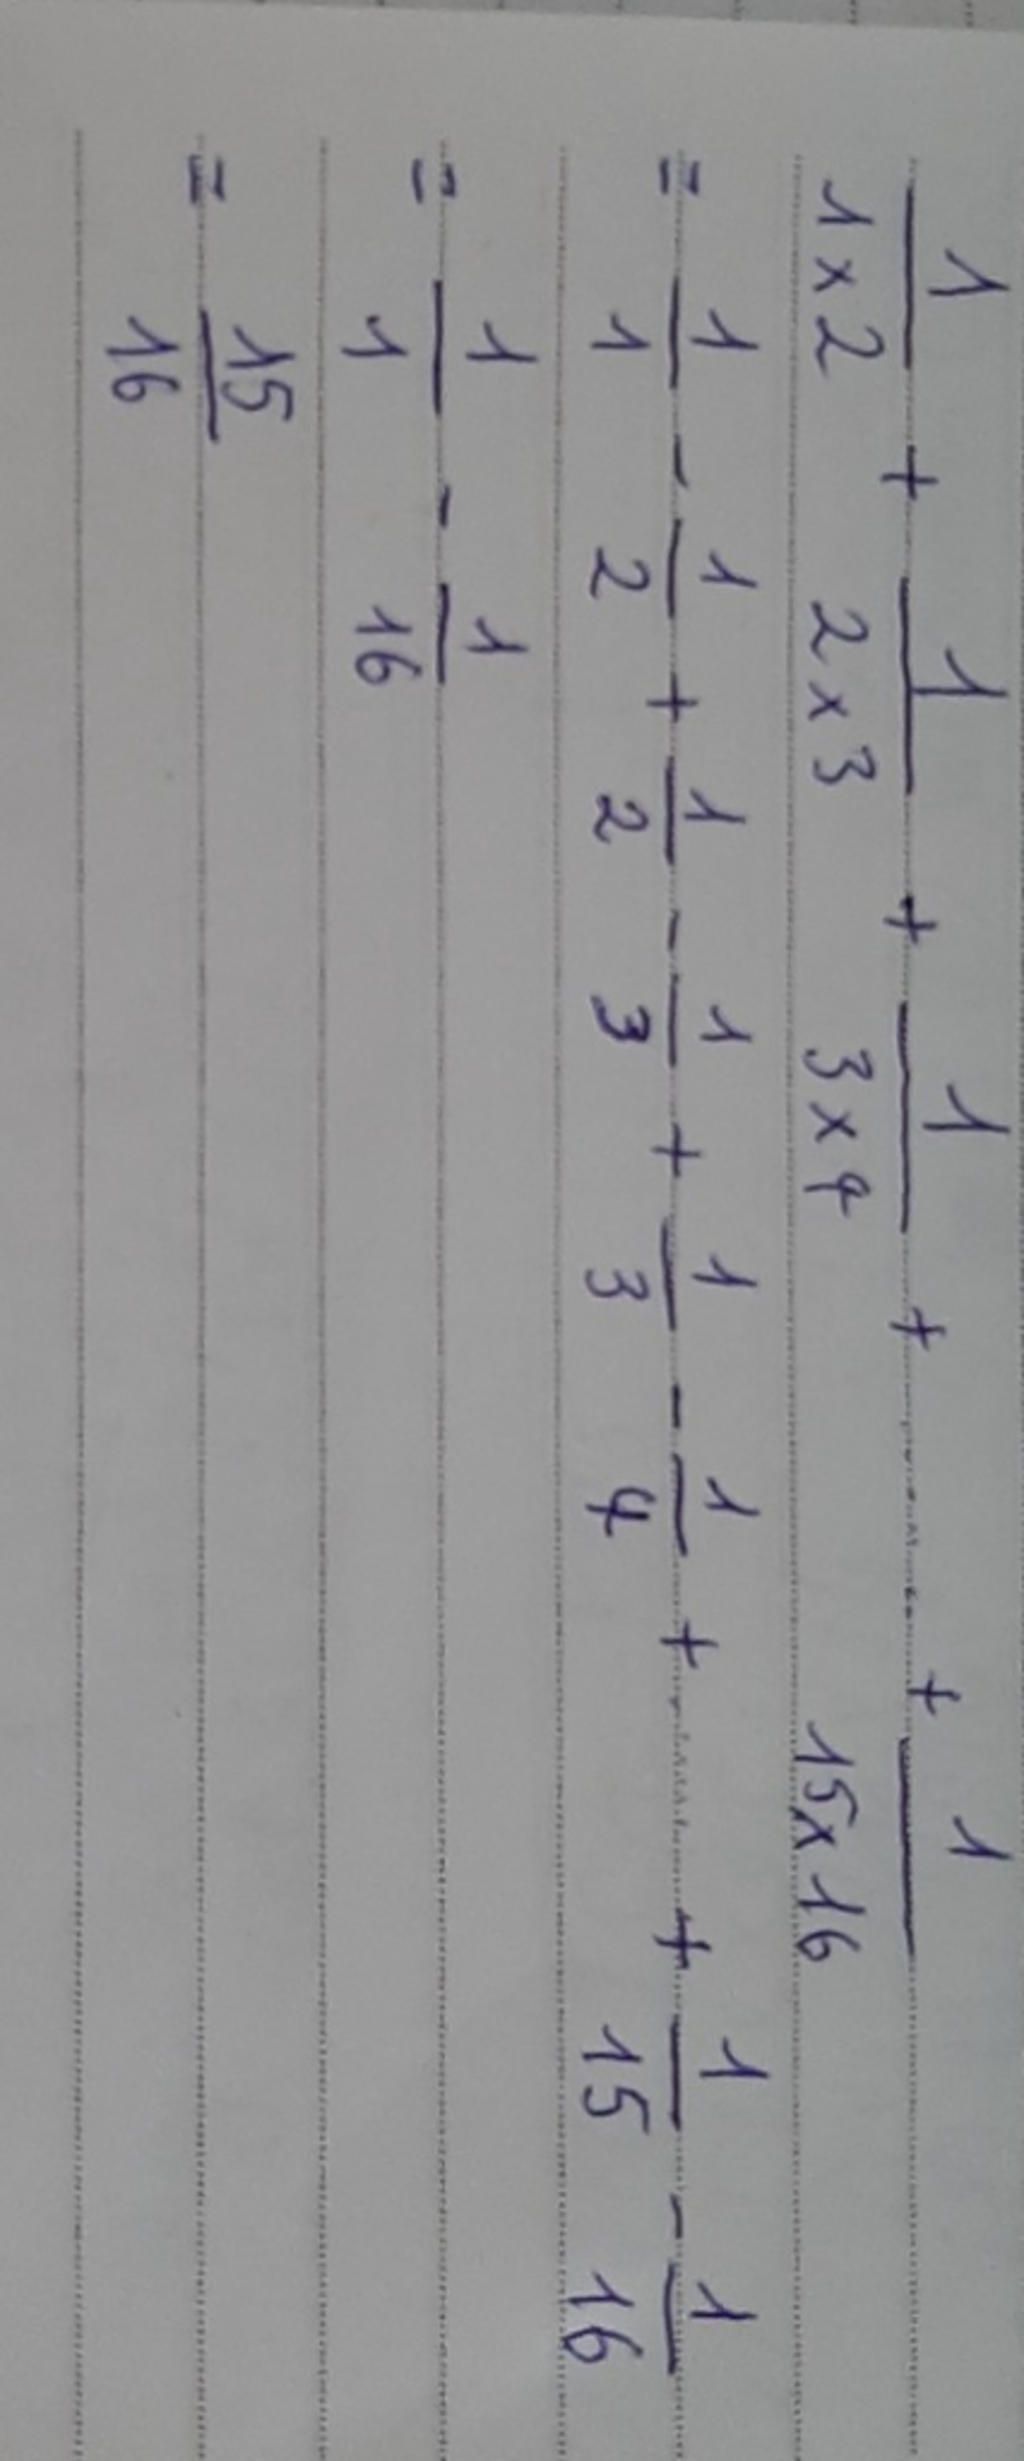 1/(1×2) + 1/(2×3) + 1/(3×4) + ........ + 1/(15×16)
= 1/1 - 1/2 + 1/2 - 1/3 + 1/3 - 1/4 + ........ + 1/15 - 1/16
= 1/1 - 1/16
= 15/16